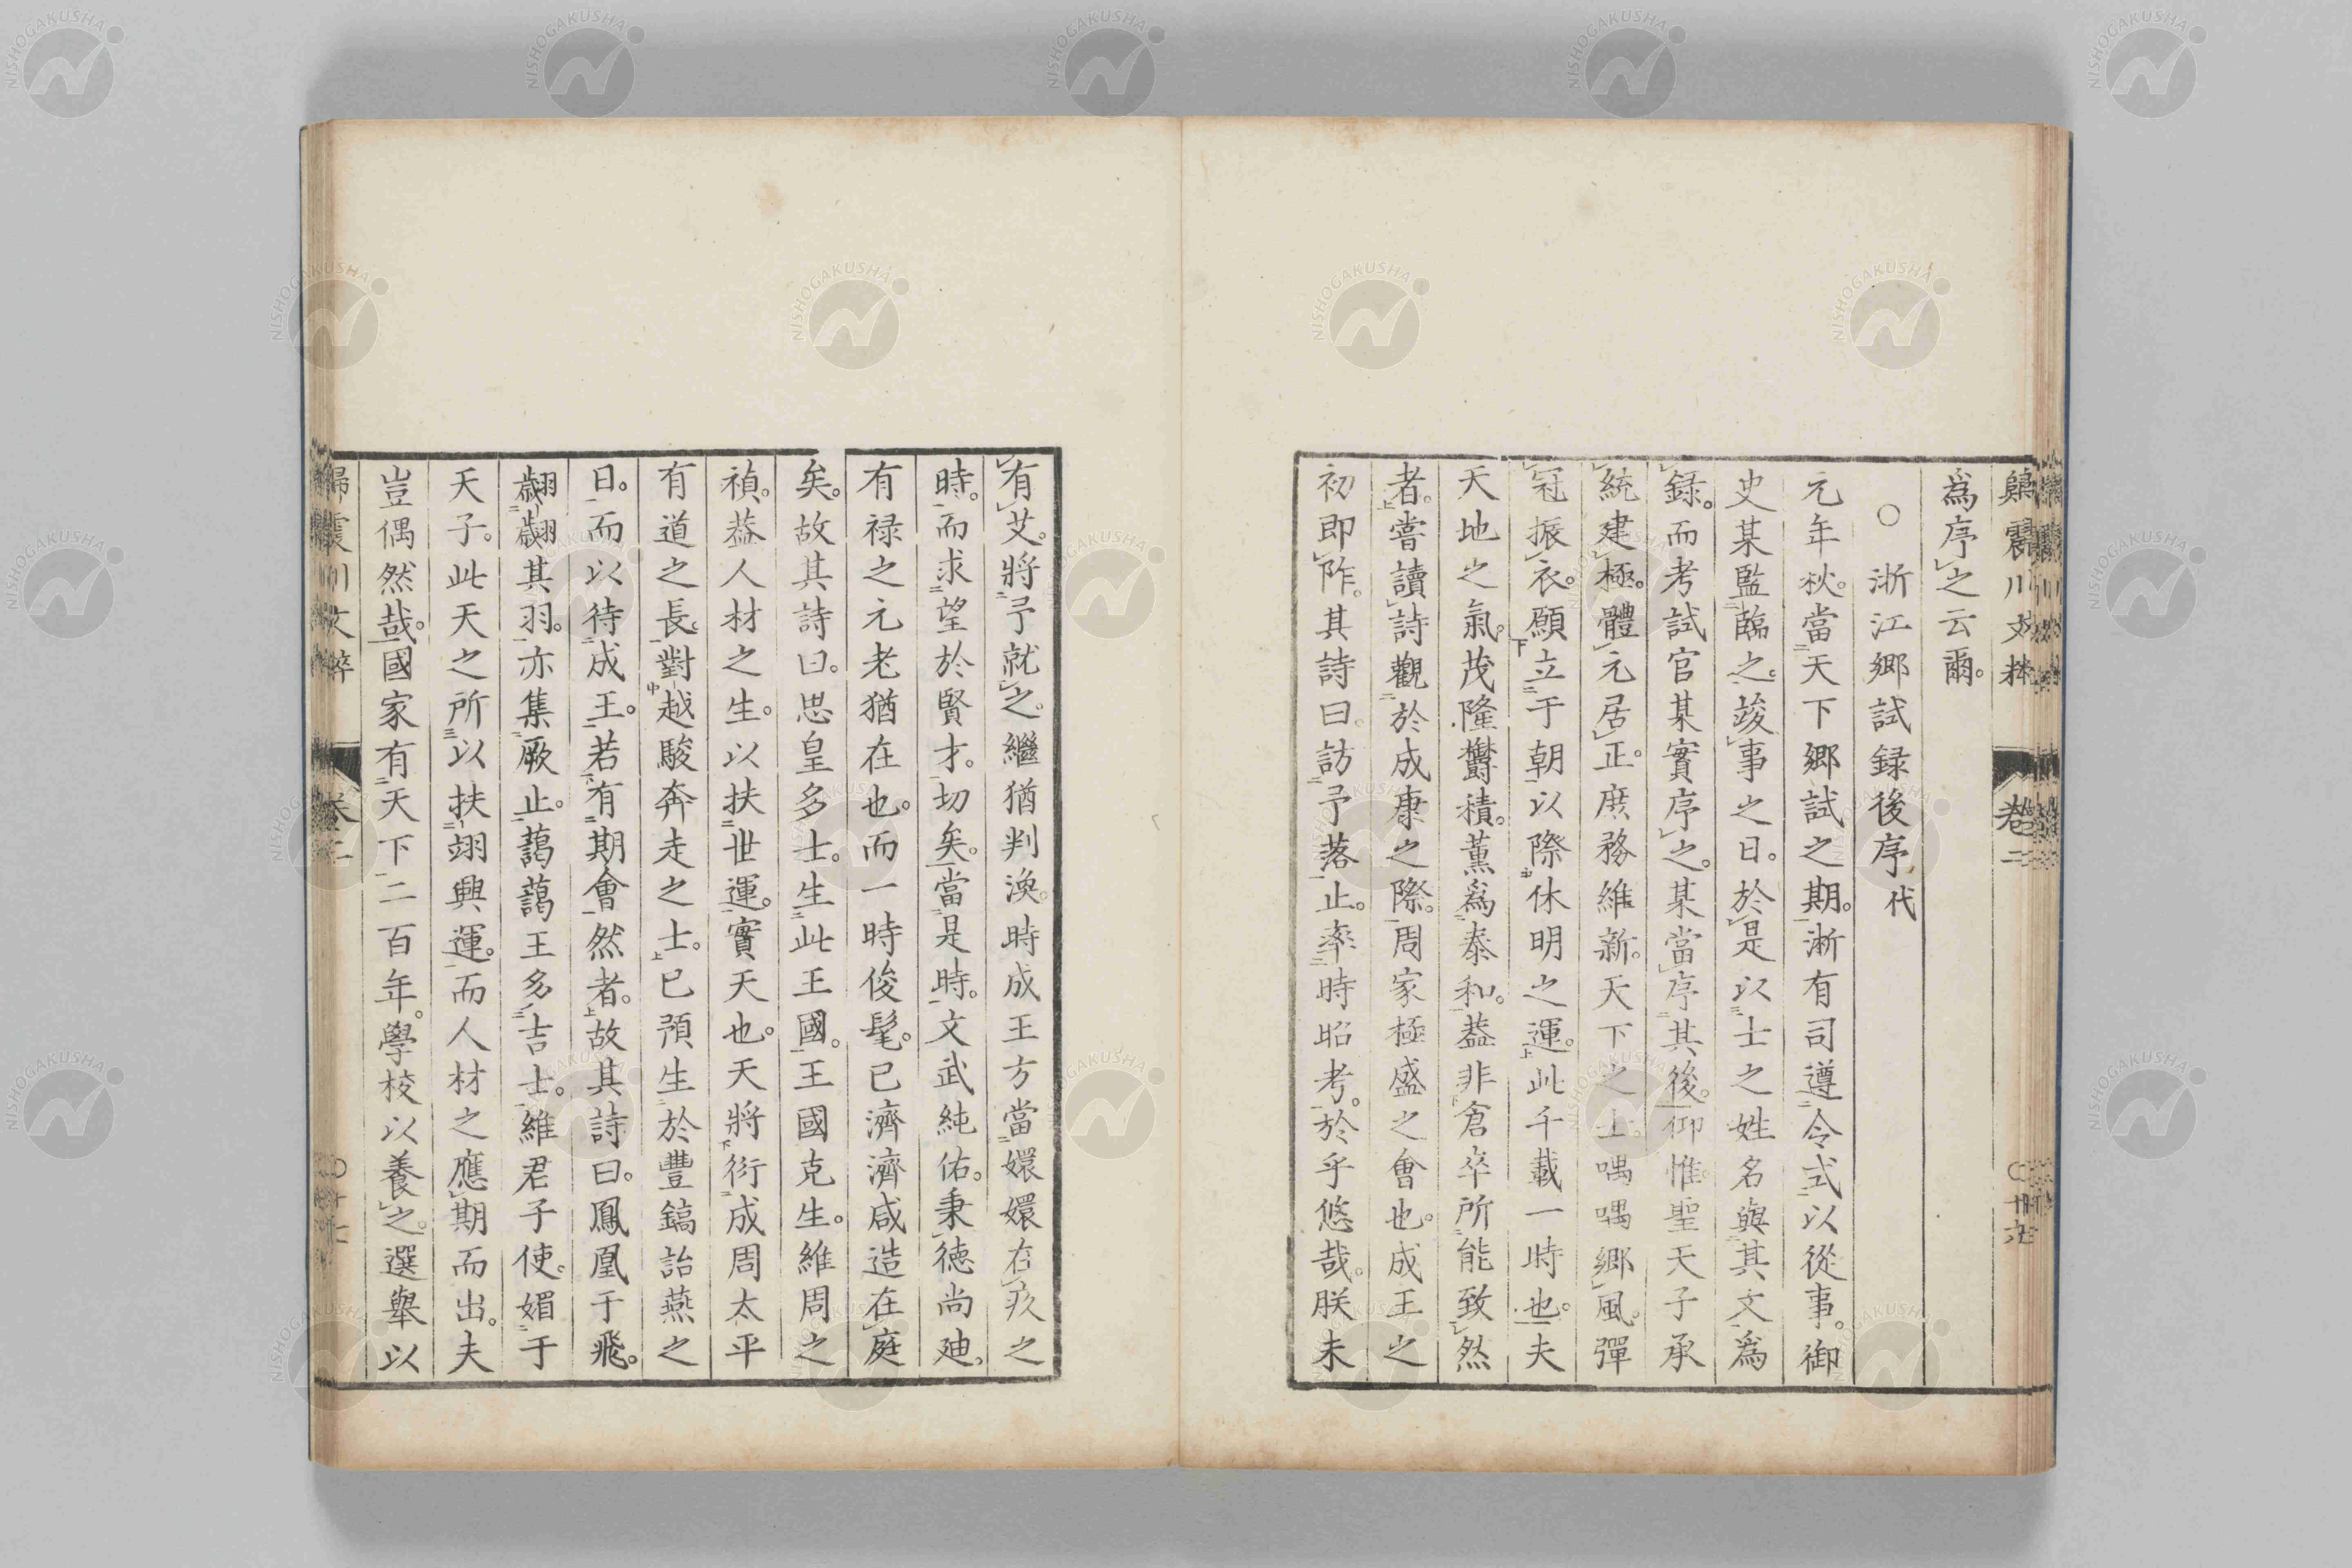 歸震川文粹
卷二
爲序之云爾。
○浙江鄉試録後序代
元年秋。當天下鄉試之期。浙有司遵令式以從事。御
史某監臨之。竣事之日。於是以士之姓名與其文爲
録。而考試官某實序之。某當序其後。仰惟聖天子承
統建極。體元居正。庶務維新。天下之士。喁喁鄉風。彈
冠振衣。願立于朝以際休明之運。此千載一時也。夫
天地之氣。茂隆欝積。薰爲泰和。葢非倉卒所能致然
者。嘗讀詩觀於成康之際。周家極盛之會也。成王之
初即阼。其詩曰。訪予落止。率時昭考。於乎悠哉。朕未
有艾。將予就之。繼猶判渙。時成王方當嬛嬛在疚之
時。而求望於賢才。切矣。當是時。文武純佑。秉德尚廸。
有禄之元老猶在也。而一時俊髦。已濟濟咸造在庭
矣。故其詩曰。思皇多士。生此王國。王國克生。維周之
禎。葢人材之生。以扶世運。實天也。天將衍成周太平
有道之長。對越駿奔走之士。已預生於豐鎬詒燕之
日。而以待成王。若有期會然者。故其詩曰。鳳凰于飛。
翽翽其羽。亦集厥止。藹藹王多吉士。維君子使。媚于
天子。此天之所以扶翊興運。而人材之應期而出。夫
豈偶然哉。國家有天下二百年。學校以養之。選舉以
歸震川文粹
卷二
NISHOGAKUSHA